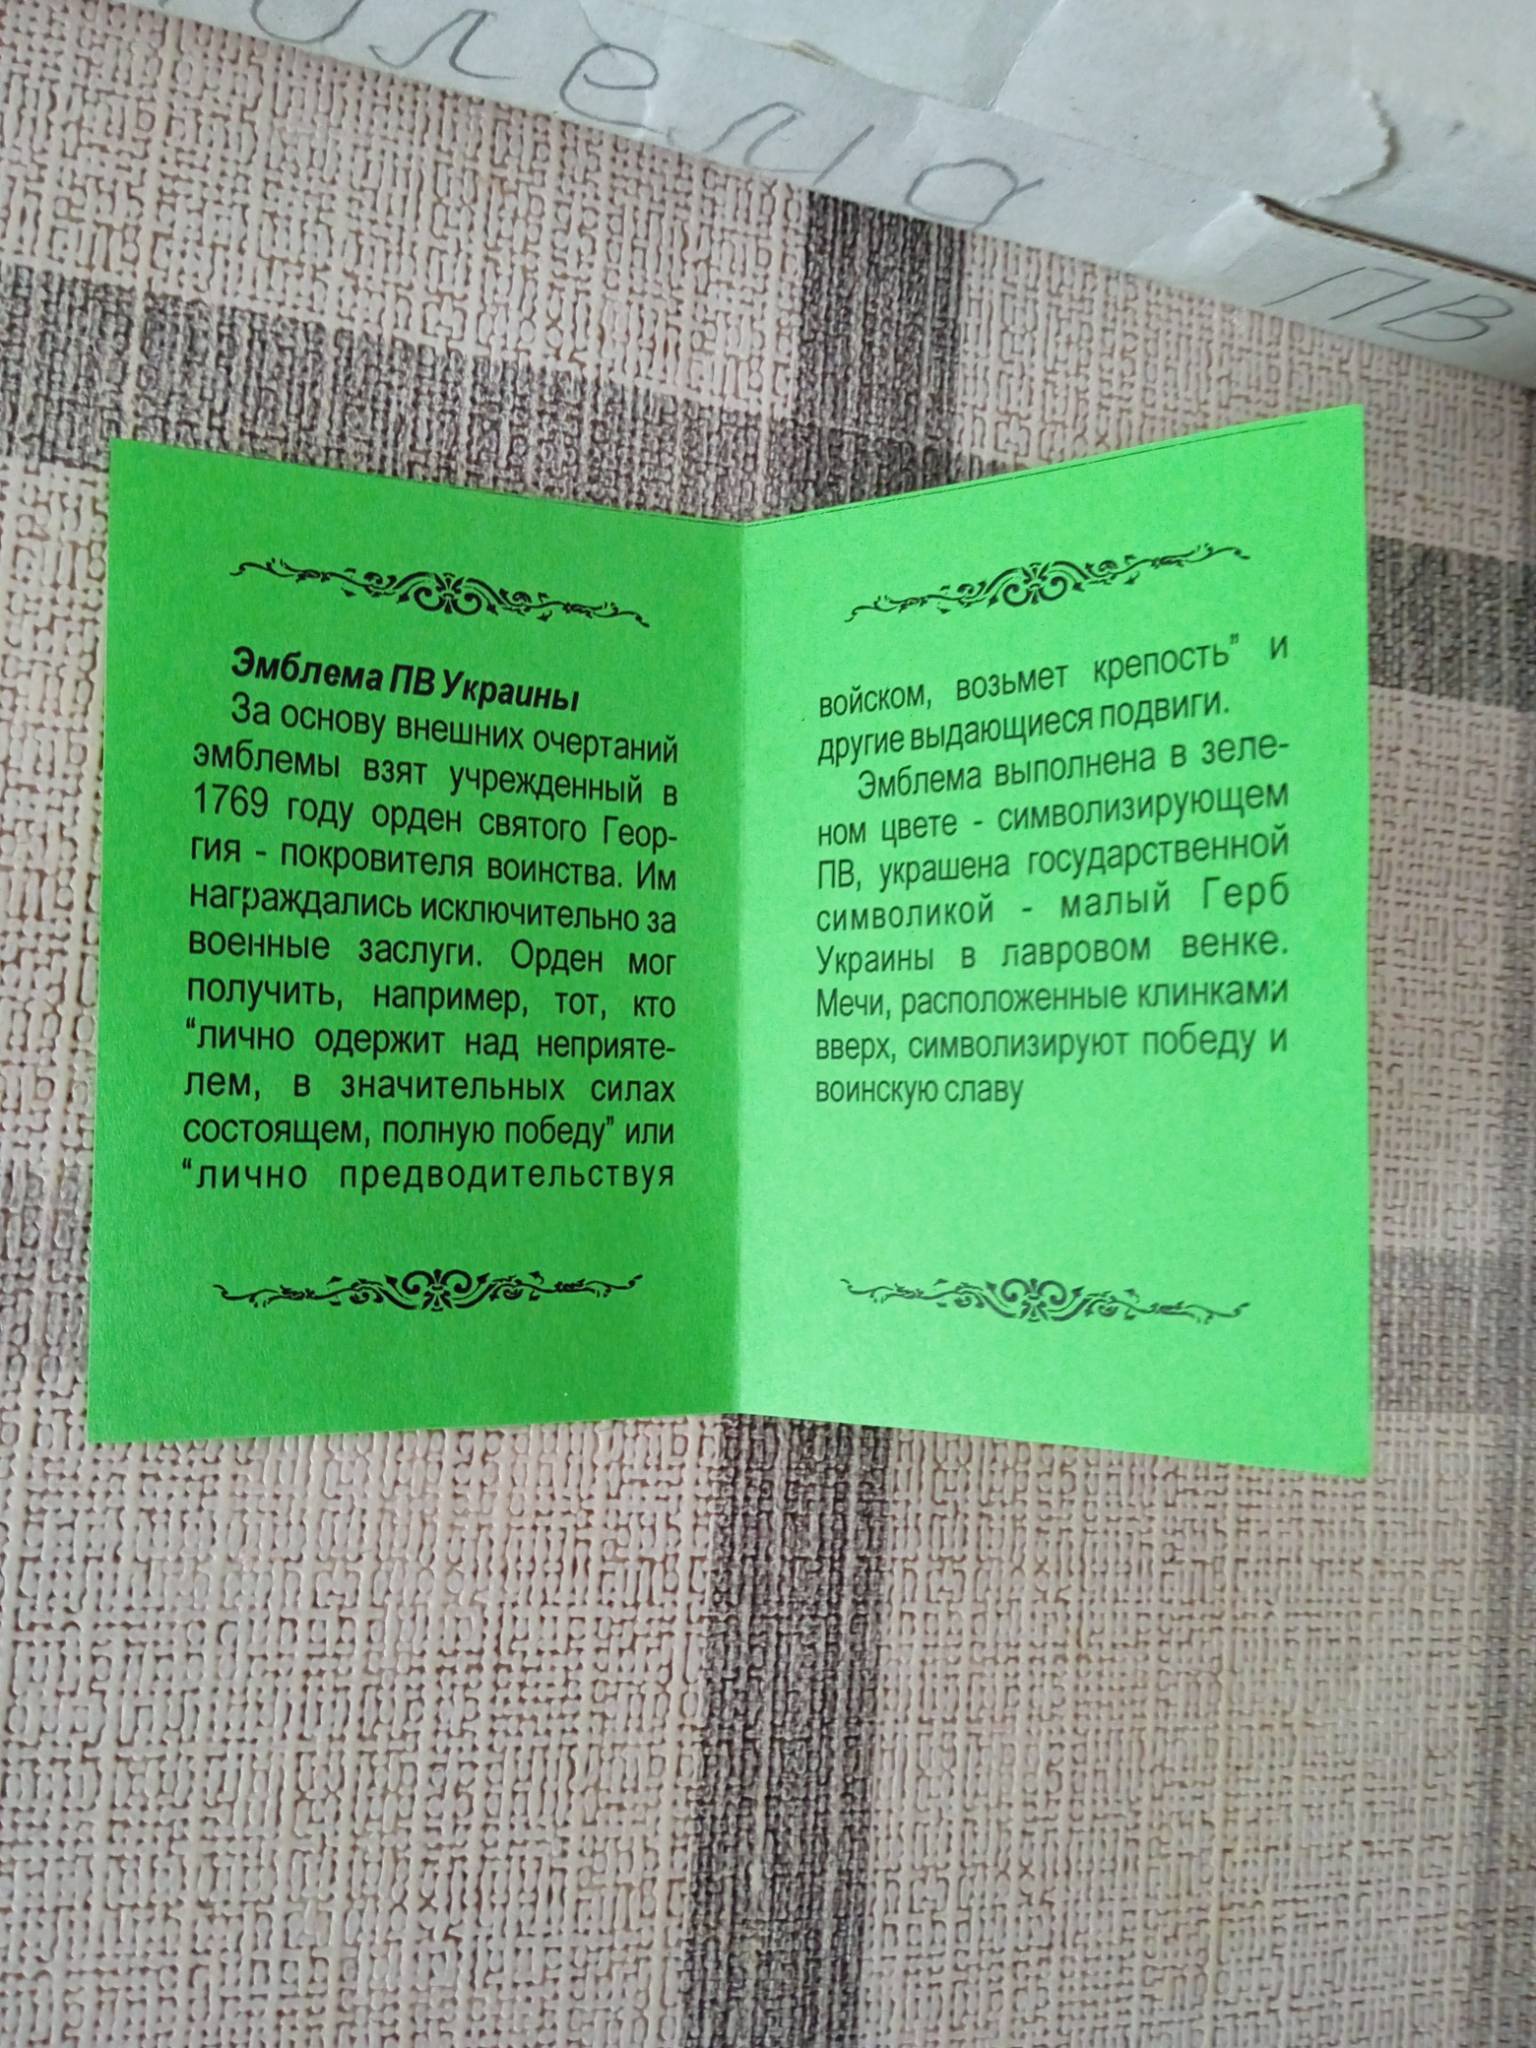 ПВ
Эмблема ПВ Украины
За основу внешних очертаний
эмблемы взят учрежденный в
1769 году орден святого Геор-
гия - покровителя воинства. Им
награждались исключительно за
военные заслуги. Орден мог
получить, например, тот, кто
“лично одержит над неприяте-
лем, в значительных силах
состоящем, полную победу” или
“лично предводительствуя
войском, возьмет крепость” и
другие выдающиеся подвиги.
Эмблема выполнена в зеле-
ном цвете - символизирующем
ПВ, украшена государственной
символикой - малый Герб
Украины в лавровом венке.
Мечи, расположенные клинками
вверх, символизируют победу и
воинскую славу